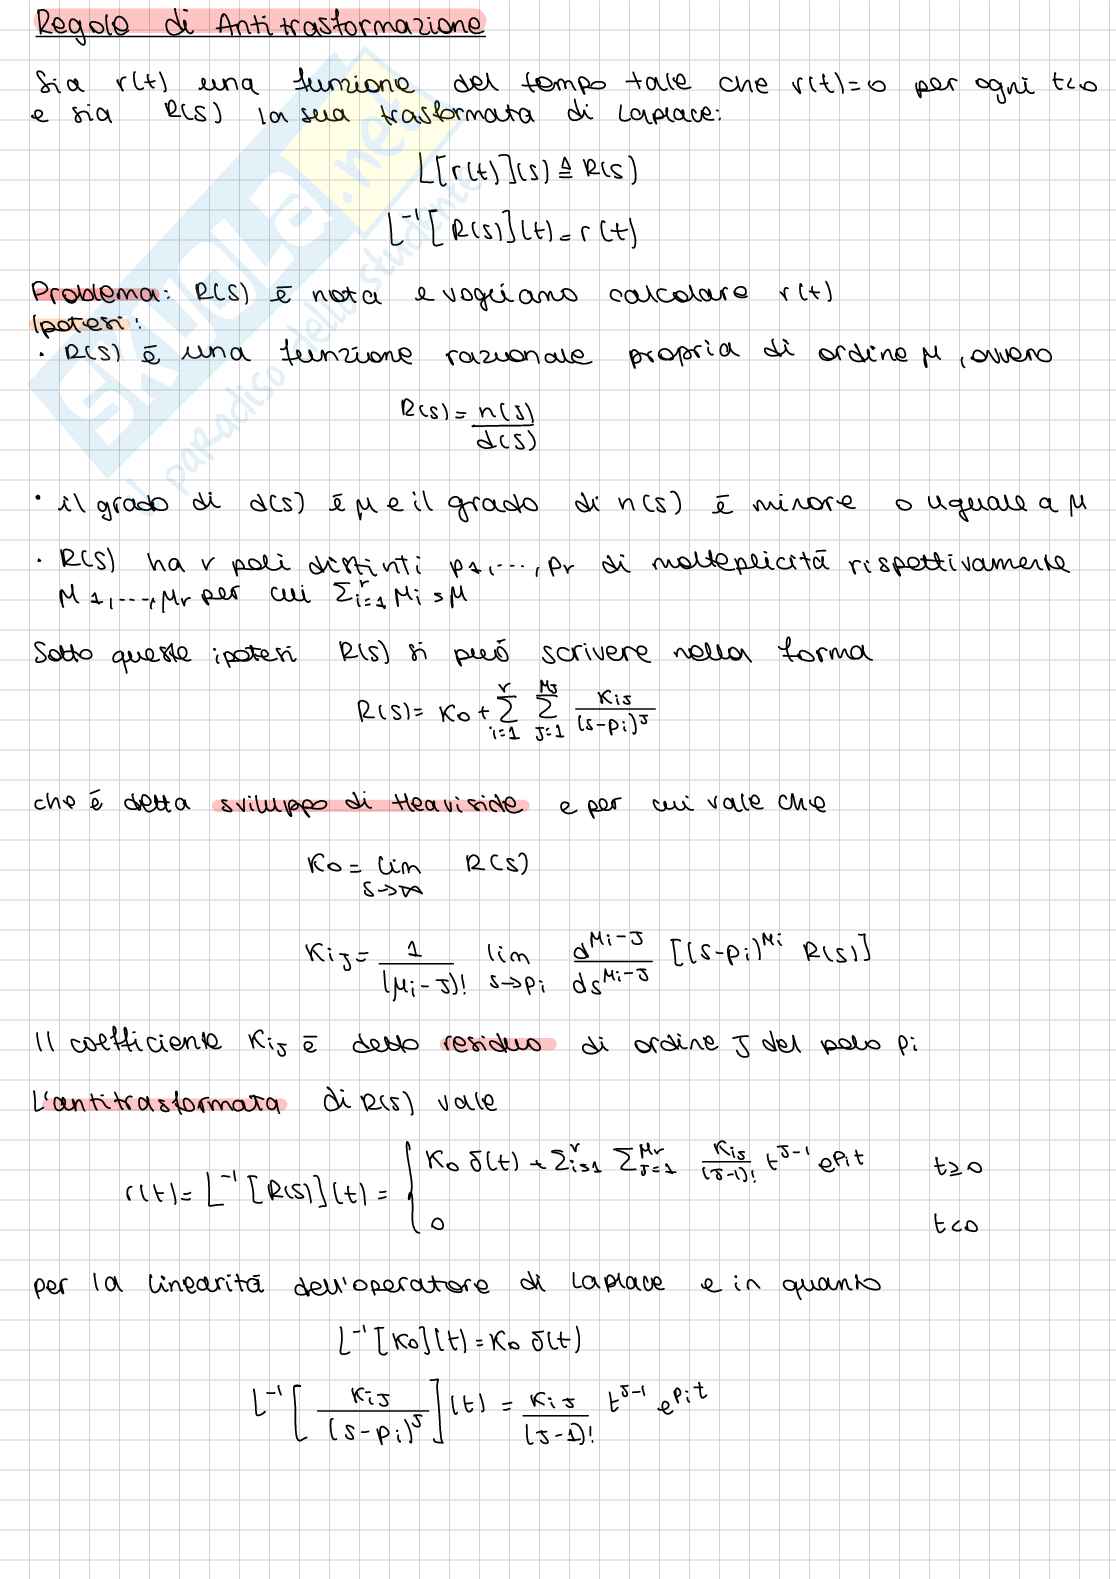 Regole di Antitrasformazione
Sia r(t) una funzione del tempo tale che r(t)=0 per ogni t<0
e sia R(s) la sua trasformata di Laplace:
L[r(t)](s) ≜ R(s)
L⁻¹[R(s)](t) = r(t)
Problema: R(s) è nota e vogliamo calcolare r(t)
Ipotesi:
• R(s) è una funzione razionale propria di ordine μ, ovvero
R(s) = n(s)/d(s)
• il grado di d(s) è μ e il grado di n(s) è minore o uguale a μ
• R(s) ha r poli distinti p1,...,pr di molteplicità rispettivamente
μ1,...,μr per cui Σ_{i=1}^{r} μi = μ
Sotto queste ipotesi R(s) si può scrivere nella forma
R(s) = K0 + Σ_{i=1}^{r} Σ_{J=1}^{μJ} KiJ/(s-pi)^J
che è detta sviluppo di Heaviside e per cui vale che
K0 = lim_{s→∞} R(s)
KiJ = 1/(μi-J)! lim_{s→pi} d^{μi-J}/ds^{μi-J} [(s-pi)^{μi} R(s)]
Il coefficiente KiJ è detto residuo di ordine J del polo pi
L'antitrasformata di R(s) vale
r(t) = L⁻¹[R(s)](t) = { K0 δ(t) + Σ_{i=1}^{r} Σ_{J=1}^{μr} KiJ/(J-1)! t^{J-1} e^{pi t} t≥0
0 t<0
per la linearità dell'operatore di Laplace e in quanto
L⁻¹[K0](t) = K0 δ(t)
L⁻¹[KiJ/(s-pi)^J](t) = KiJ/(J-1)! t^{J-1} e^{pi t}
SKUOLA.net
il paradiso dello studente